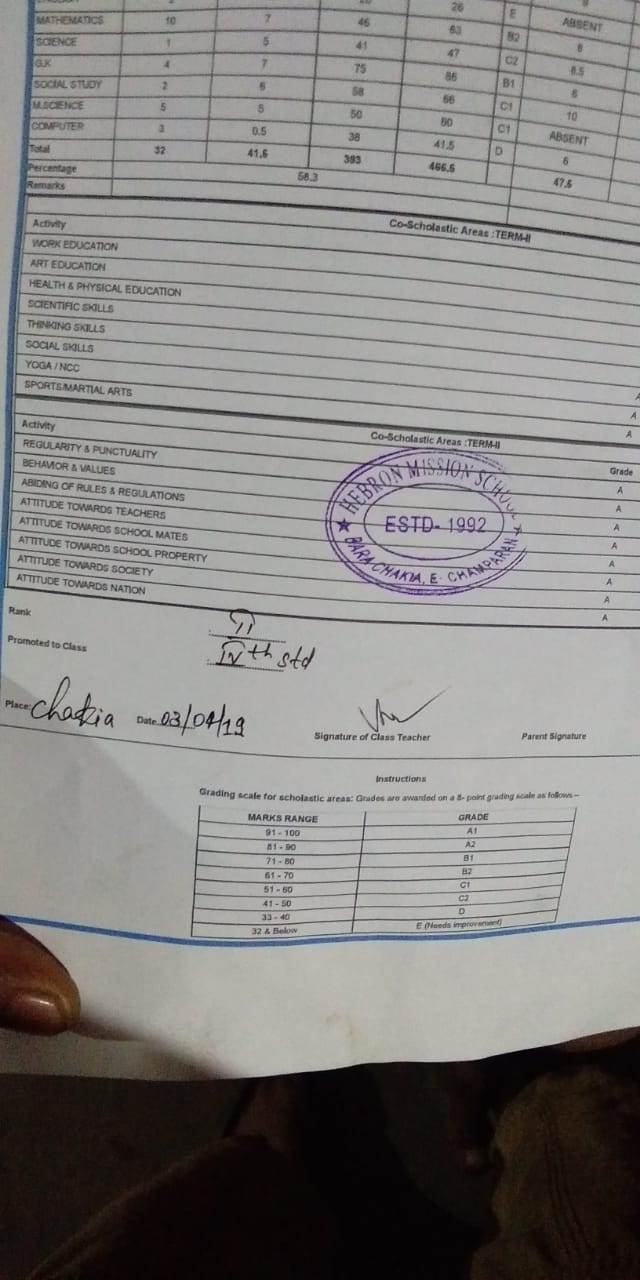 26 E ABSENT
MATHEMATICS 10 7 46 63 B2 8
SCIENCE 1 5 41 47 C2 8.5
G.K 4 7 75 86 B1 6
SOCIAL STUDY 2 6 58 66 C1 10
M.SCIENCE 5 5 50 60 C1 ABSENT
COMPUTER 3 0.5 38 41.5 D 6
Total 32 41.5 393 466.5 47.5
Percentage 58.3
Remarks
Co-Scholastic Areas :TERM-II
Activity
WORK EDUCATION
ART EDUCATION
HEALTH & PHYSICAL EDUCATION
SCIENTIFIC SKILLS
THINKING SKILLS
SOCIAL SKILLS
YOGA / NCC A
SPORTS/MARTIAL ARTS A
A
Co-Scholastic Areas :TERM-II
Activity Grade
REGULARITY & PUNCTUALITY A
BEHAVIOR & VALUES A
ABIDING OF RULES & REGULATIONS A
ATTITUDE TOWARDS TEACHERS A
ATTITUDE TOWARDS SCHOOL MATES A
ATTITUDE TOWARDS SCHOOL PROPERTY A
ATTITUDE TOWARDS SOCIETY A
ATTITUDE TOWARDS NATION A
HEBRON MISSION SCHOOL
ESTD- 1992
BARA CHAKIA, E. CHAMPARAN
Rank II
Promoted to Class IVth std
Place: Chakia Date 03/04/19
Signature of Class Teacher Parent Signature
Instructions
Grading scale for scholastic areas: Grades are awarded on a 8- point grading scale as follows –
MARKS RANGE GRADE
91 - 100 A1
81 - 90 A2
71 - 80 B1
61 - 70 B2
51 - 60 C1
41 - 50 C2
33 - 40 D
32 & Below E (Needs improvement)